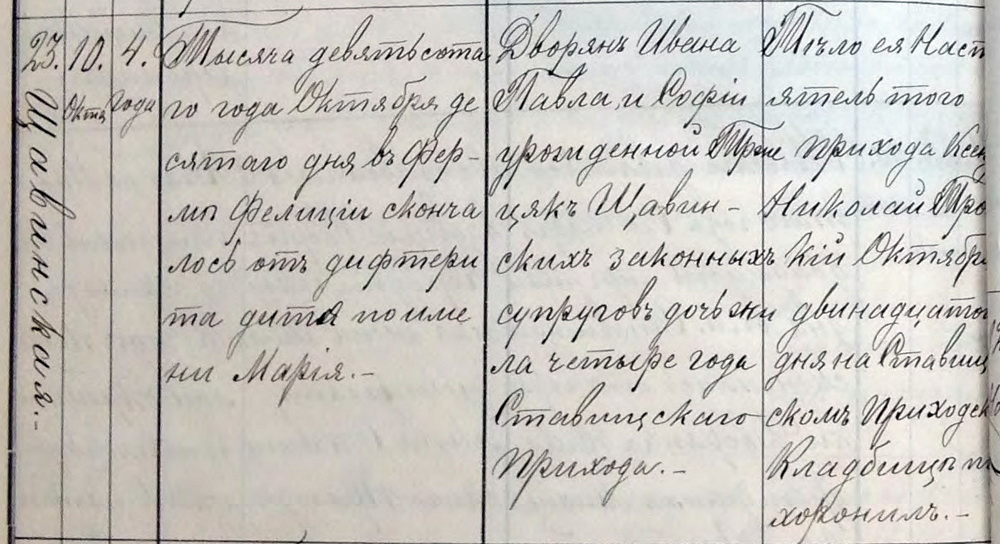 23. 10. 4.
Окт. года
Щавинская.-
Тысяча девятьсота
го года Октября де
сятаго дня въ Фер-
мы Фелиціи сконча
лось отъ дифтери
та дитя по име
ни Марія.-
Дворянъ Ивана
Павла, и Софіи
урожденной
цякъ Щавин-
скихъ законныхъ
супруговъ дочь жи
ла четыре года
Ставищскаго
Прихода.-
Тѣло ея Наст
ятель того
прихода Ксен
Николай
кій Октября
двинадцатого
дня на Ставищ
скомъ Приходск
Кладбищы п
хоронилъ.-